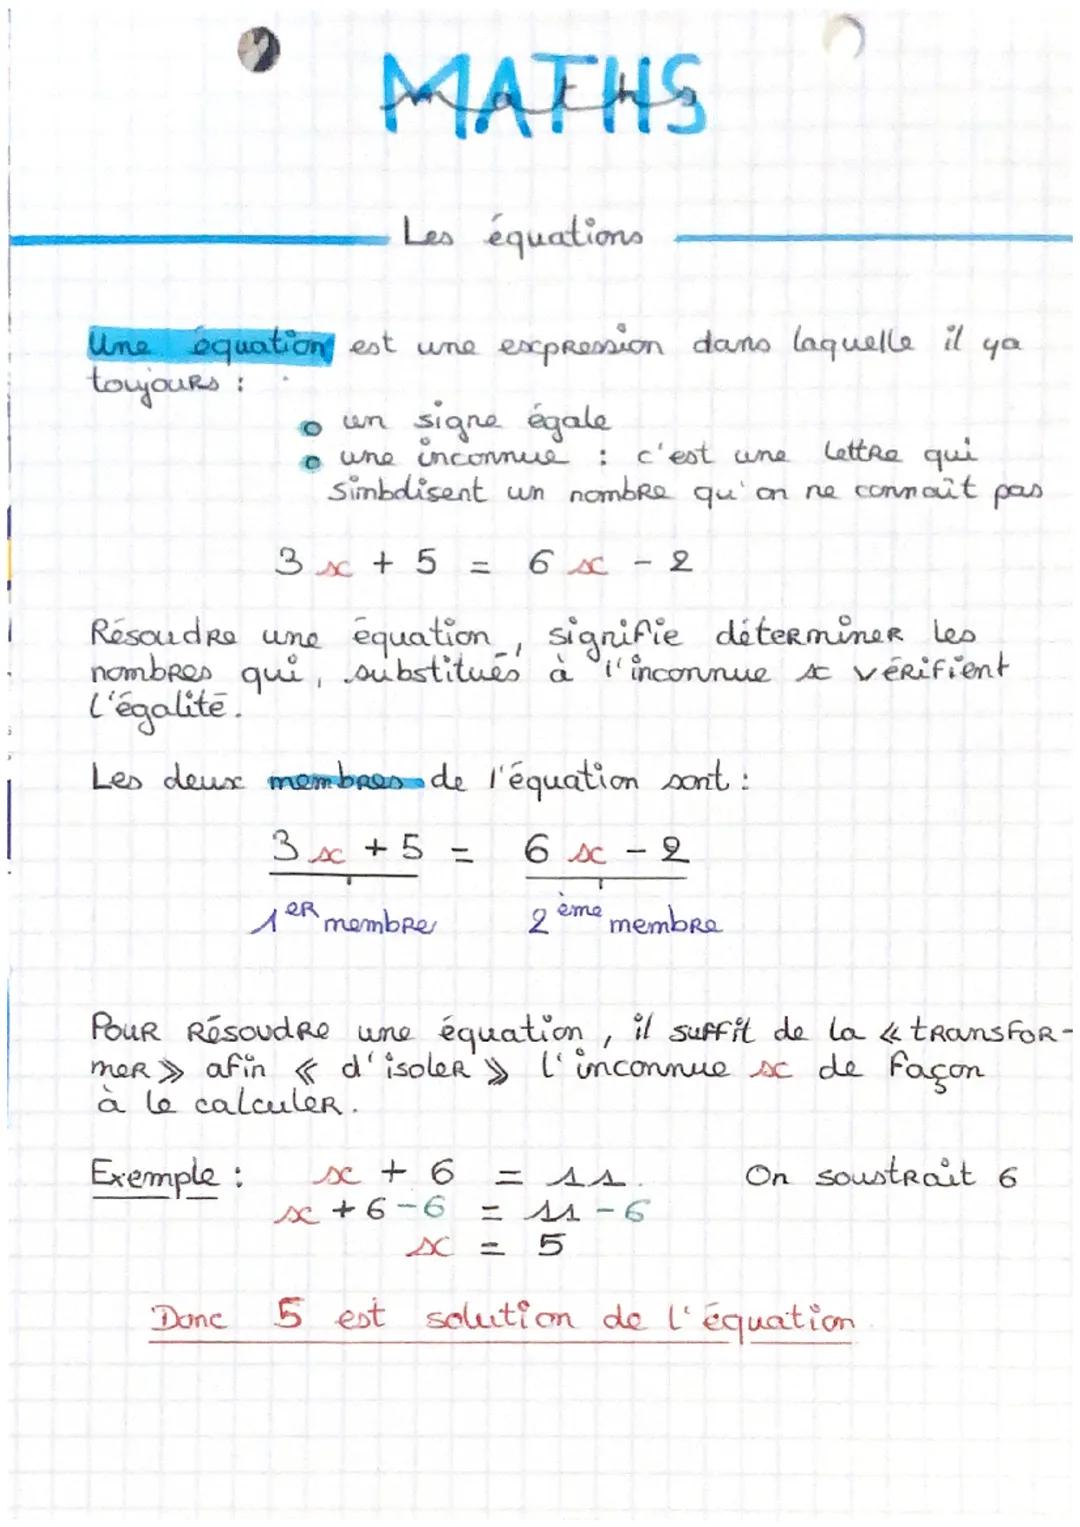 MATHS
maths
Les équations
Une équation est une expression dans laquelle il ya
toujours :
un signe égale
une inconnue : c'est une lettre qui
simbolisent un nombre qu'on ne connaît pas
3x + 5 = 6x - 2
Résoudre une équation, signifie déterminer les
nombres qui, substitués à l'inconnue x vérifient
l'égalité.
Les deux membres de l'équation sont :
3x + 5 = 6x - 2
1er membre 2ème membre
Pour résoudre une équation, il suffit de la « transfor-
mer » afin « d'isoler » l'inconnue x de façon
à le calculer.
Exemple : x + 6 = 11. On soustrait 6
x + 6 - 6 = 11 - 6
x = 5
Donc 5 est solution de l'équation.